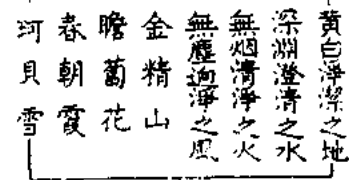 黄白淨潔之地
深淵澄清之水
無烟清淨之火
無塵逈淨之風
金精山
瞻蔔花
春朝霞
珂貝雪